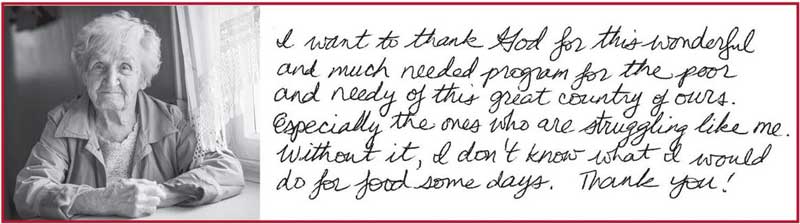 I want to thank God for this wonderful
and much needed program for the poor
and needy of this great country of ours.
Especially the ones who are struggling like me.
Without it, I don't know what I would
do for food some days. Thank you!